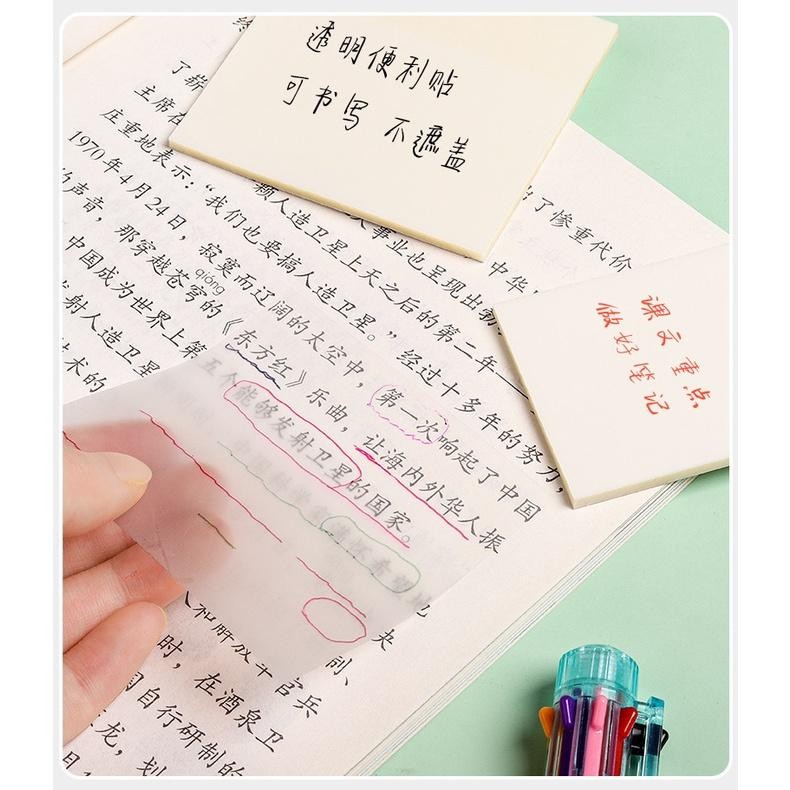 透明便利贴
可书写 不遮盖
课文重点
做好笔记
终
了崭
主席在
庄重地表示：“我们也要搞人造卫星。”经过十多年的努力，
1970年4月24日，寂寞而辽阔的太空中，第一次响起了中国
的声音，那穿越苍穹的《东方红》乐曲，让海内外华人振
qióng
中国成为世界上第
五个能够发射卫星的国家。
发射人造卫星
技术的
出了惨重代价
中华
颗人造卫星上天之后的第二年
事业也呈现出勃
中国科学家满怀希望地
央
制、
人和解放军官兵
时，在酒泉卫
国自行研制的
龙，划